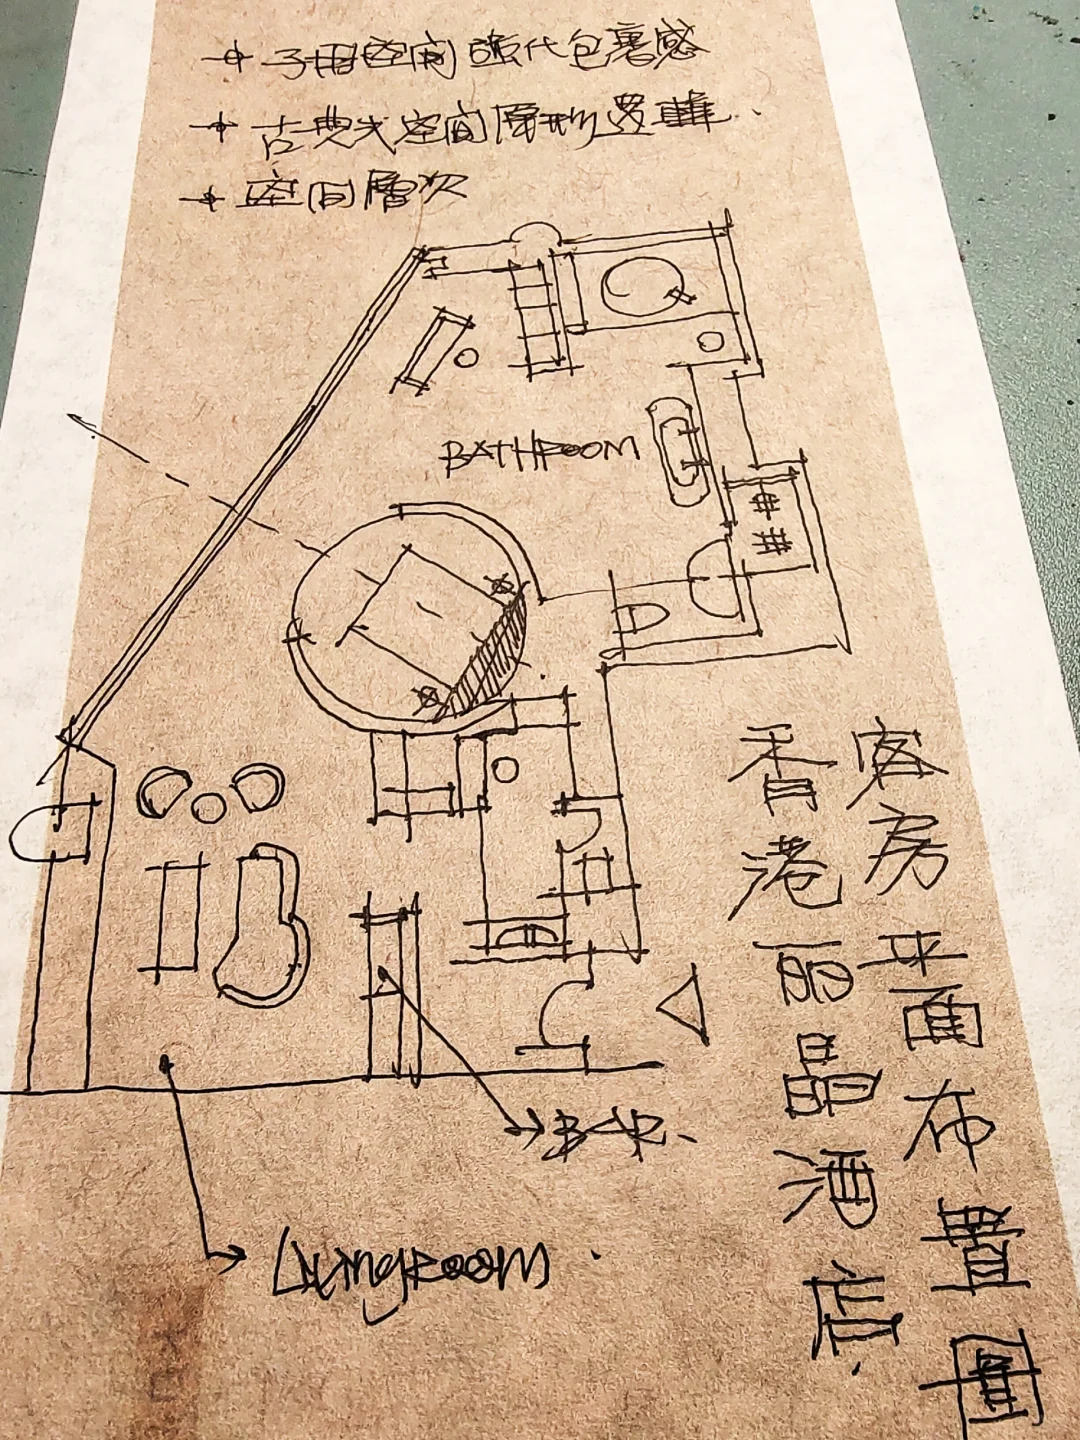 子母空間強代包裹感
古典式空間隱形邏輯
空间層次
BATHROOM
客房平面布置圖
香港丽晶酒店
BAR
Livingroom